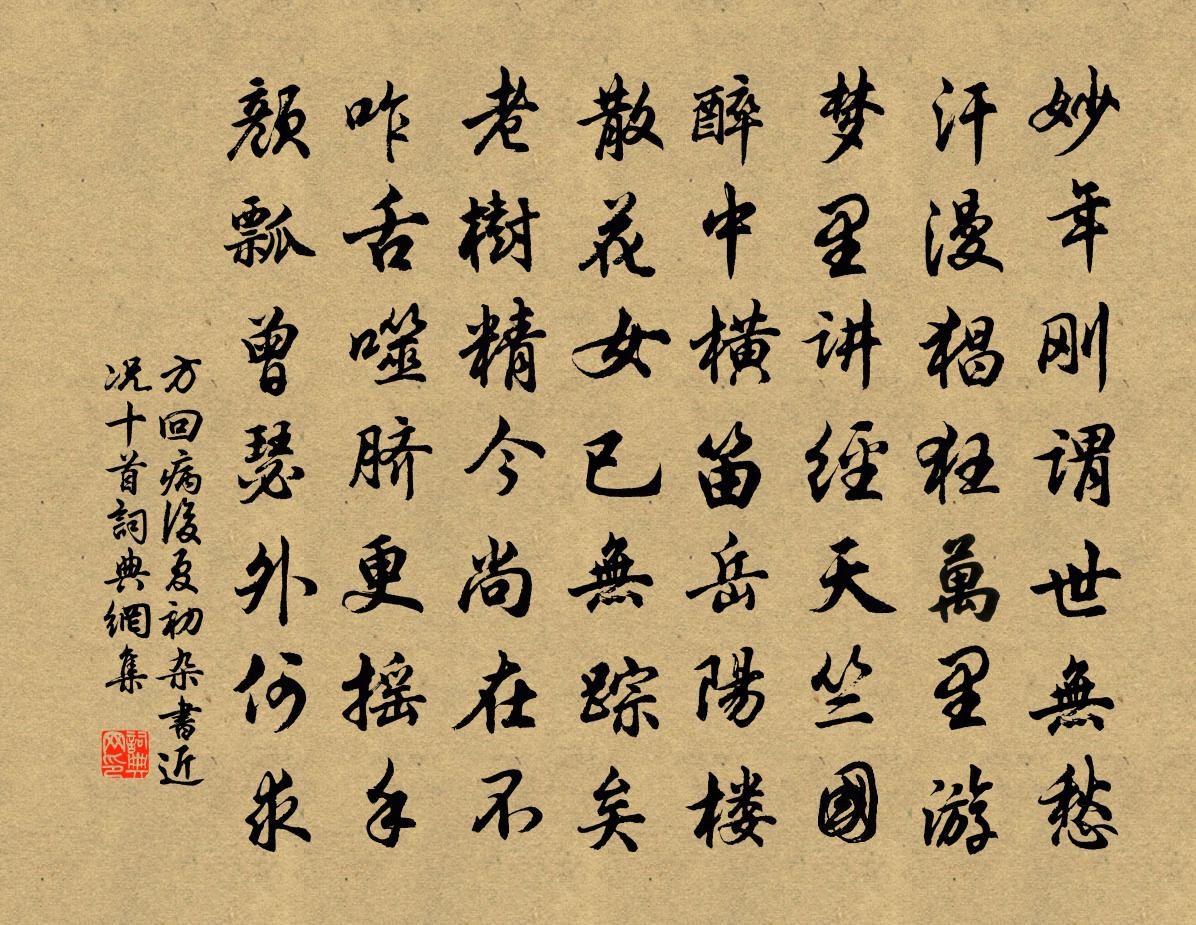 妙年刚谓世無愁
汗漫猖狂萬里游
梦里讲經天竺國
醉中横笛岳陽楼
散花女已無踪矣
老樹精今尚在不
咋舌噬脐更摇手
颜瓢曾瑟外何求
方回病後夏初杂書近
况十首詞典網集
詞典
网印